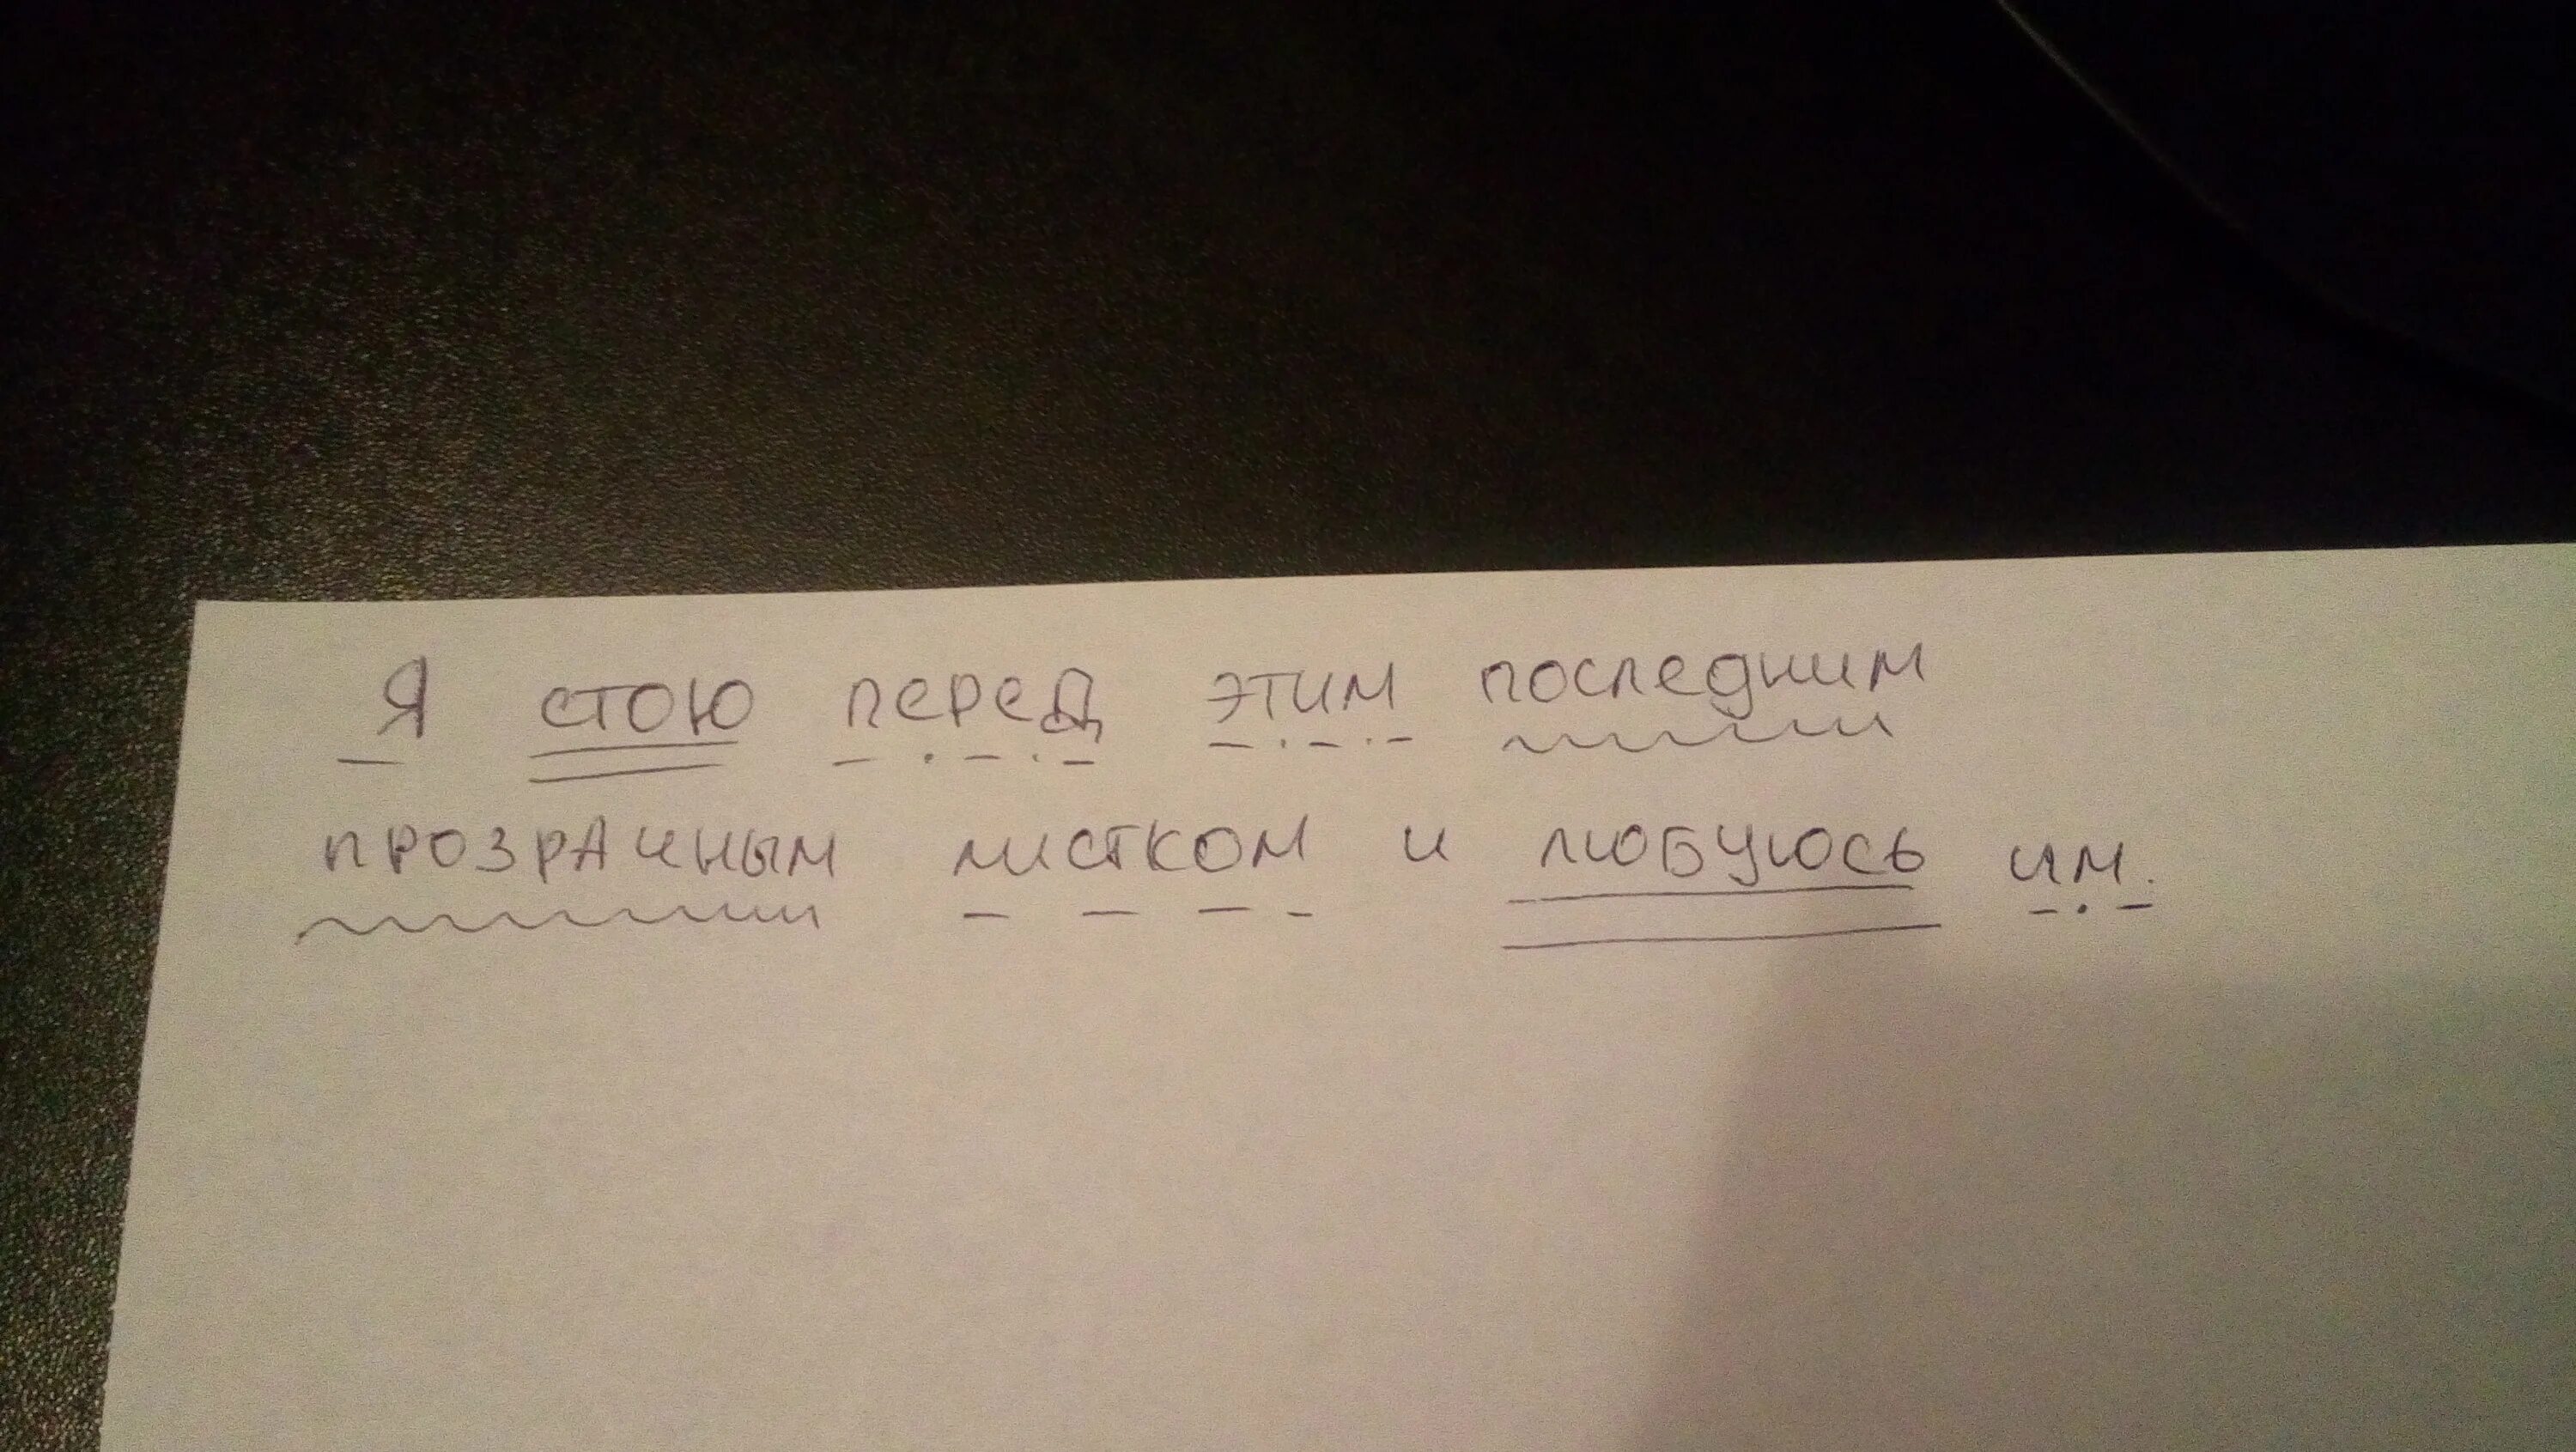 Я стою перед этим последним
прозрачным листком и любуюсь им.